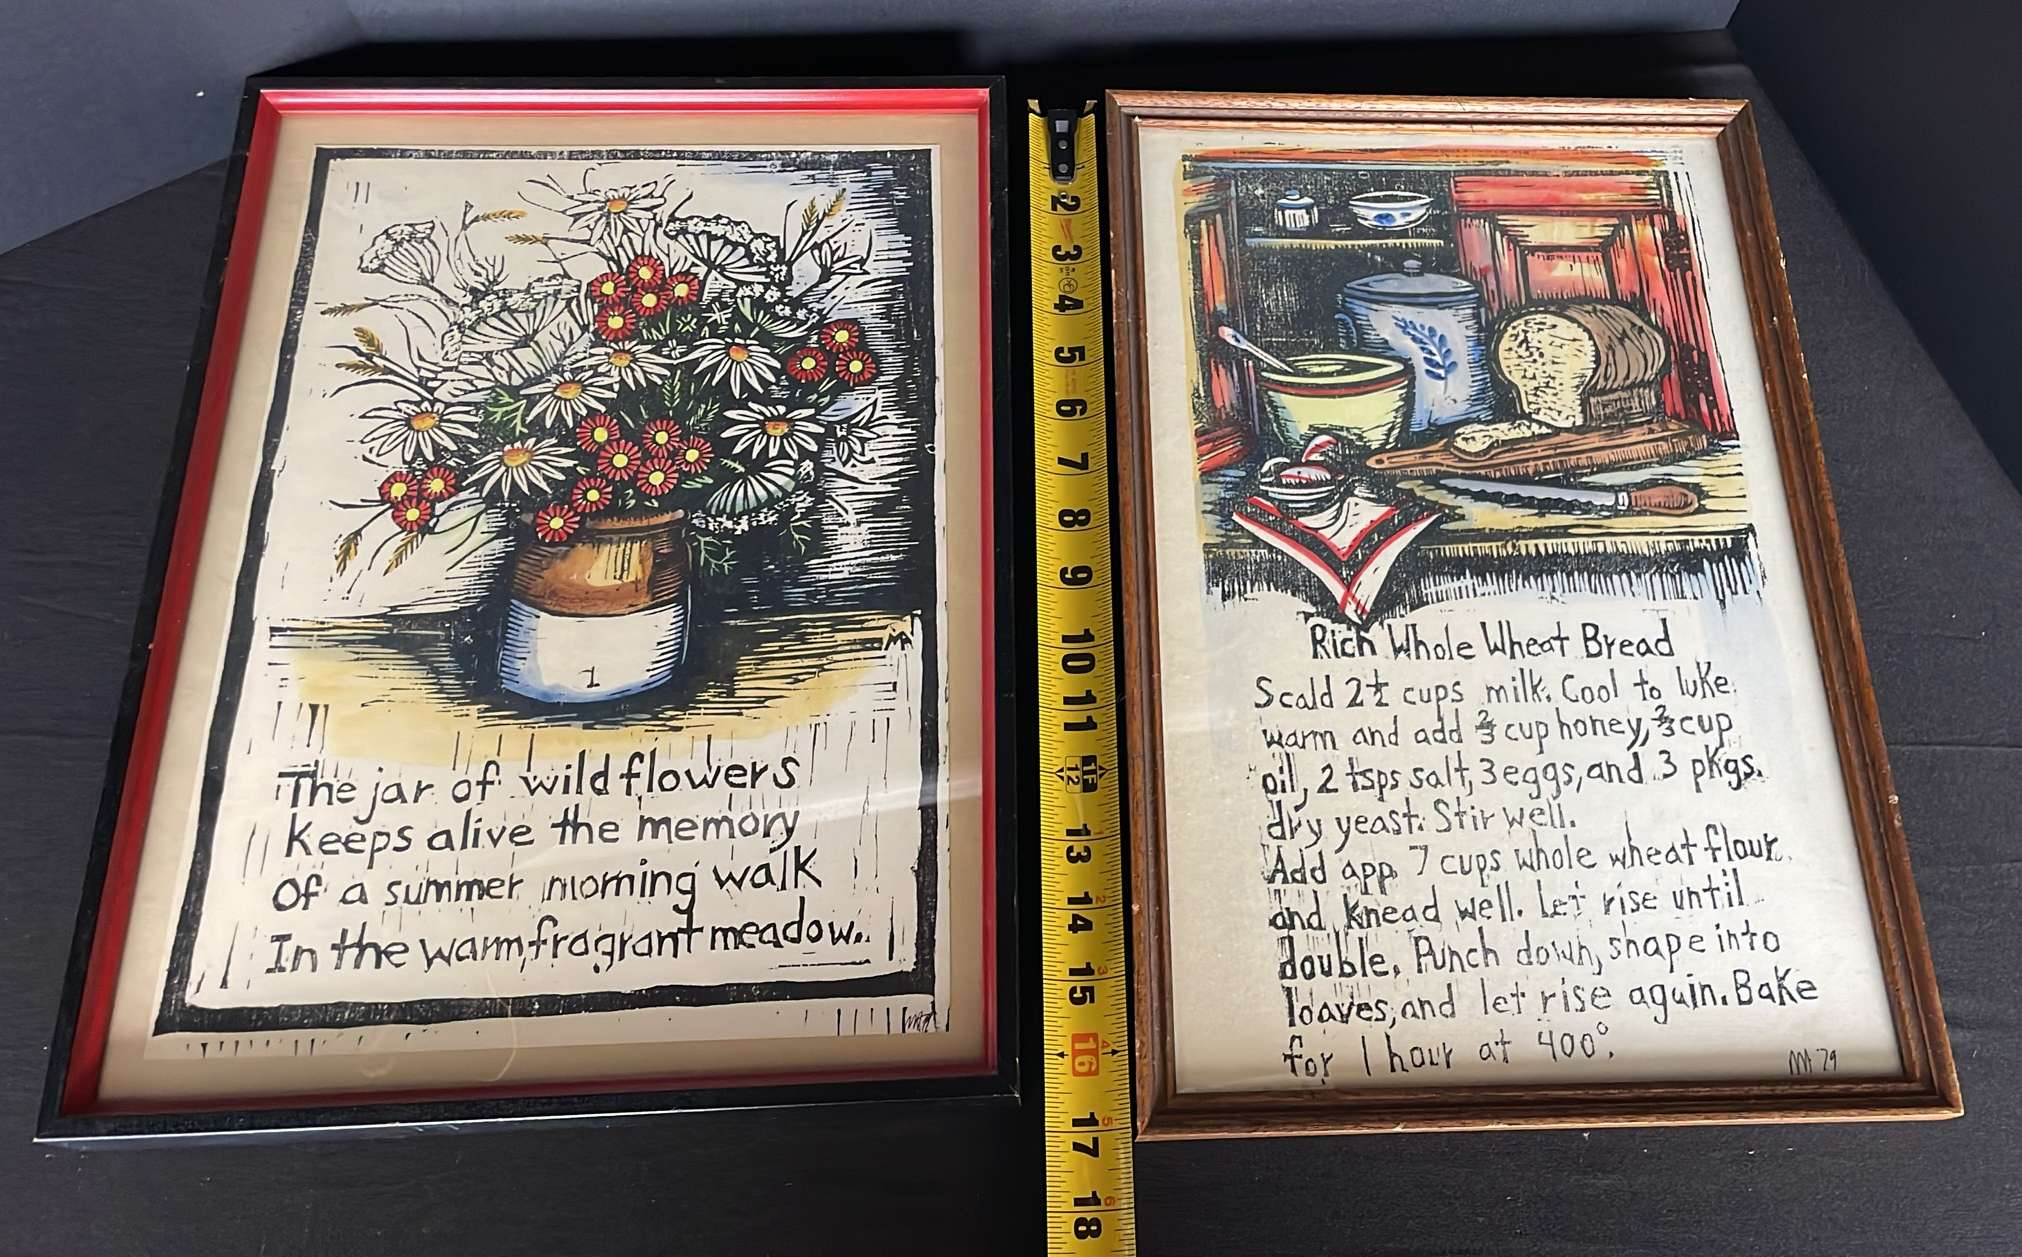 1
The jar of wildflowers
Keeps alive the memory
Of a summer morning walk
In the warm, fragrant meadow.
2
3
4
5
6
7
8
9
10
11
12 1F
13
14
15
16
17
18
Rich Whole Wheat Bread
Scald 2½ cups milk. Cool to luke
warm and add ⅔ cup honey, ⅔ cup
oil, 2 tsps salt, 3 eggs, and 3 pkgs.
dry yeast. Stir well.
Add app. 7 cups whole wheat flour
and knead well. Let rise until
double. Punch down, shape into
loaves, and let rise again. Bake
for 1 hour at 400°.
M '79